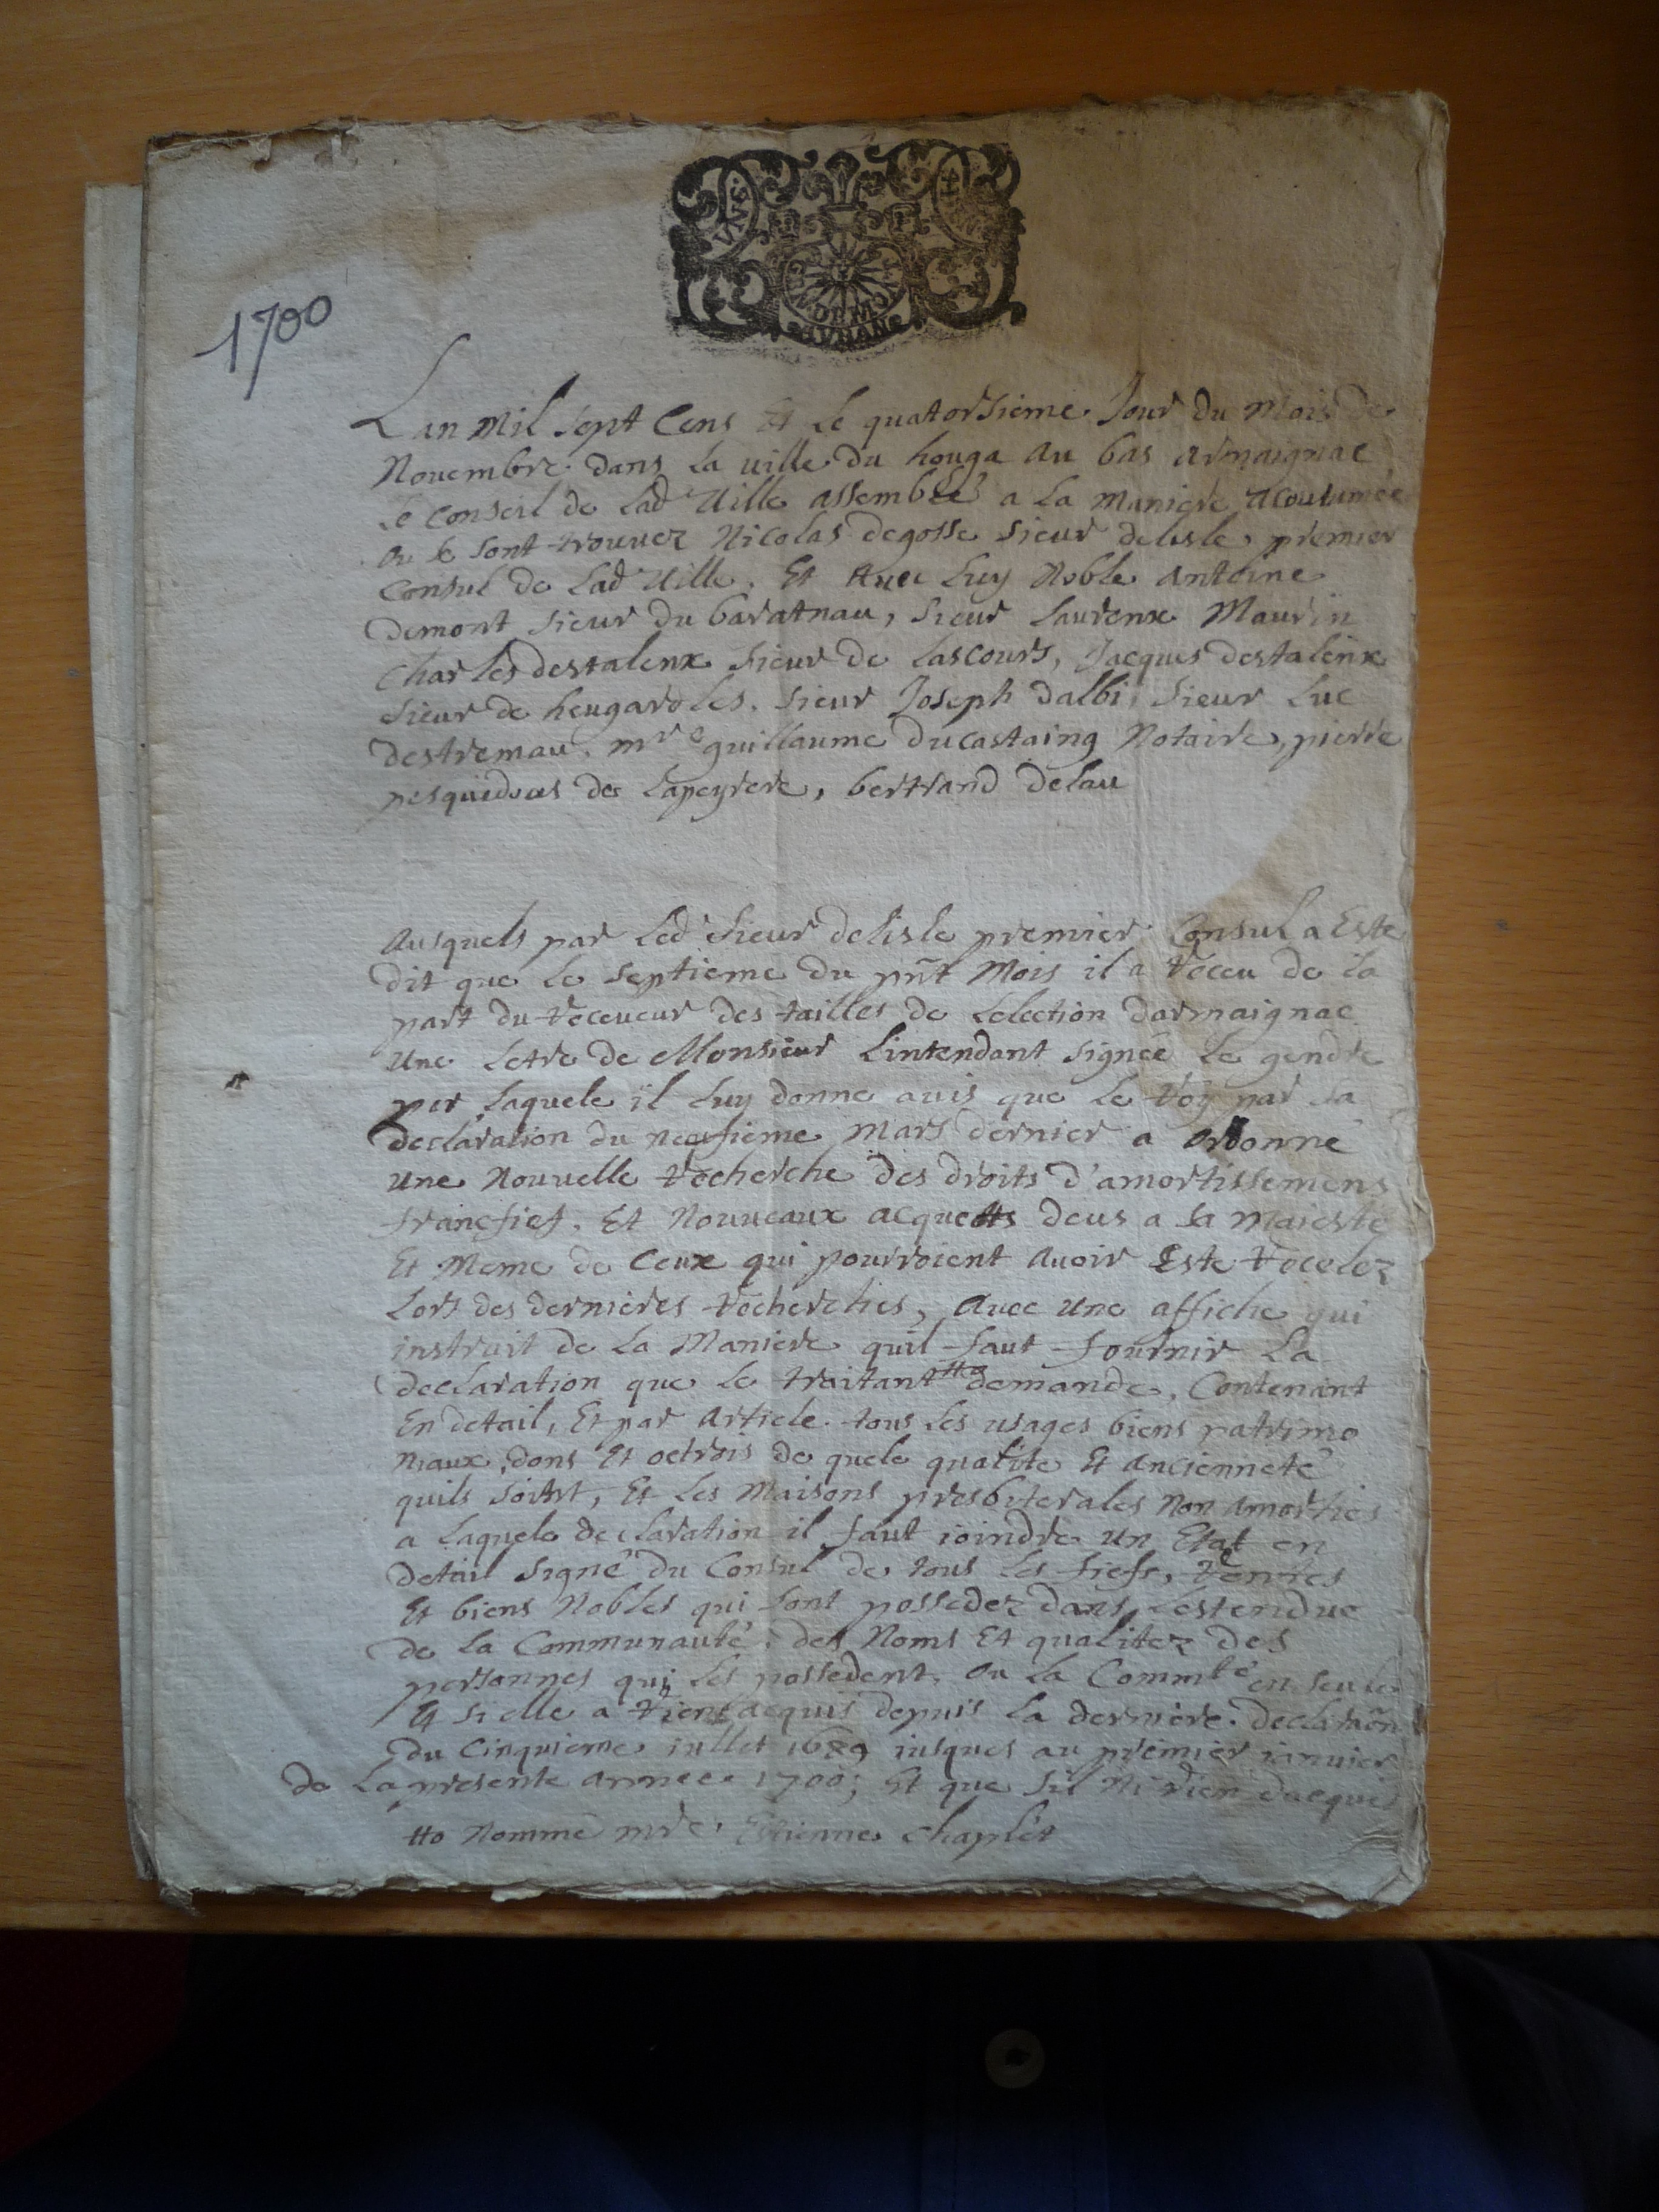 1700
DE MO
AVBAN
Lan Mil sept Cens Et Le quatorsieme Jour du Mois de
Novembre dans la ville du houga au bas armaignac
Le Conseil de Lad Ville assemblé a La Maniere acoutumée
ou se sont trouvez Nicolas degosse sieur delisle premier
Consul de Lad Ville, Et Avec Luy Noble Antoine
demont sieur du baratnau, sieur Laurenx Maurin
Charles destalenx sieur de Lascours, Jacques destalenx
sieur de heugaroles, sieur Joseph dalbi, sieur Luc
destremau, mre guillaume ducastaing Notaire, pierre
pesquidous de Lapeyrere, bertrand delau
Ausquels par Led sieur delisle premier Consul a Este
dit que le septieme du pnt Mois il a receu de la
part du receveur des tailles de Lelection darmaignac
Une Letre de Monsieur Lintendant signée Le gendre
par Laquele il Luy donne avis que Le Roy par sa
declaration du neufieme Mars dernier a ordonné
Une Nouvelle recherche des droits d'amortissemens
francfief, Et Nouveaux acquetts deus a sa Maieste
Et Meme de Ceux qui pourroient Avoir Este recelez
Lors des dernieres recherches, Avec Une affiche qui
instruit de La Maniere quil faut fournir La
declaration que Le traitant tto demande, Contenant
En detail, Et par Article tous Les usages biens patrimo
niaux, dons Et octrois de quele qualite Et ancienneté
quils soient, Et Les Maisons presbiterales Non Amorties
a Laquele declaration il faut ioindre Un Etat en
detail signé du Consul de tous Les fiefs, Rentes
Et biens Nobles qui sont possedez dans Lestendue
de La Communauté, des Noms Et qualitez des
personnes qui Les possedent, ou La Commté en seule
Et si elle a rien acquis depuis La derniere declaraõn
du Cinquieme iullet 1689 iusques au premier ianvier
de La presente annee 1700; Et que sil Ni rien dacquis
tto Nommé mre Estienne Chaplet